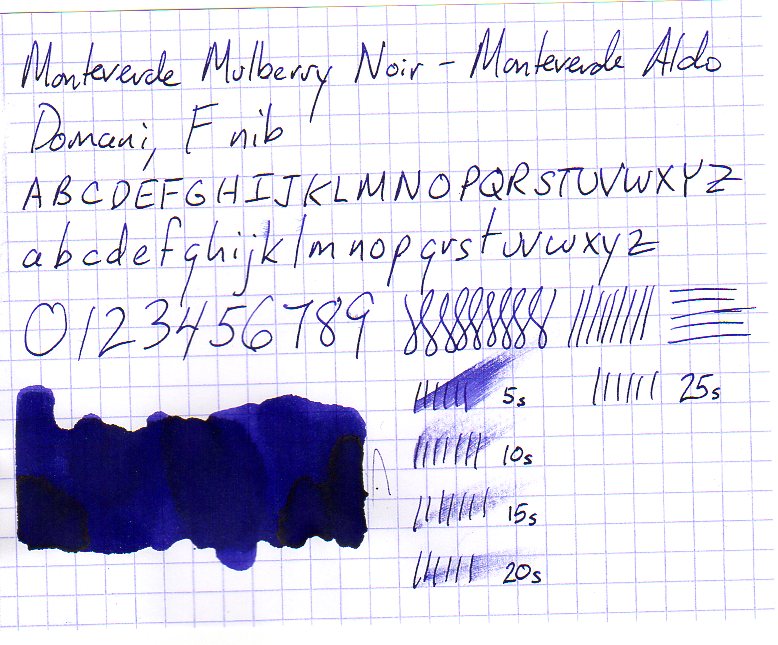 Monteverde Mulberry Noir - Monteverde Aldo
Domani, F nib
ABCDEFGHIJKLMNOPQRSTUVWXYZ
abcdefghijklmnopqrstuvwxyz
0123456789
5s 25s
10s
15s
20s